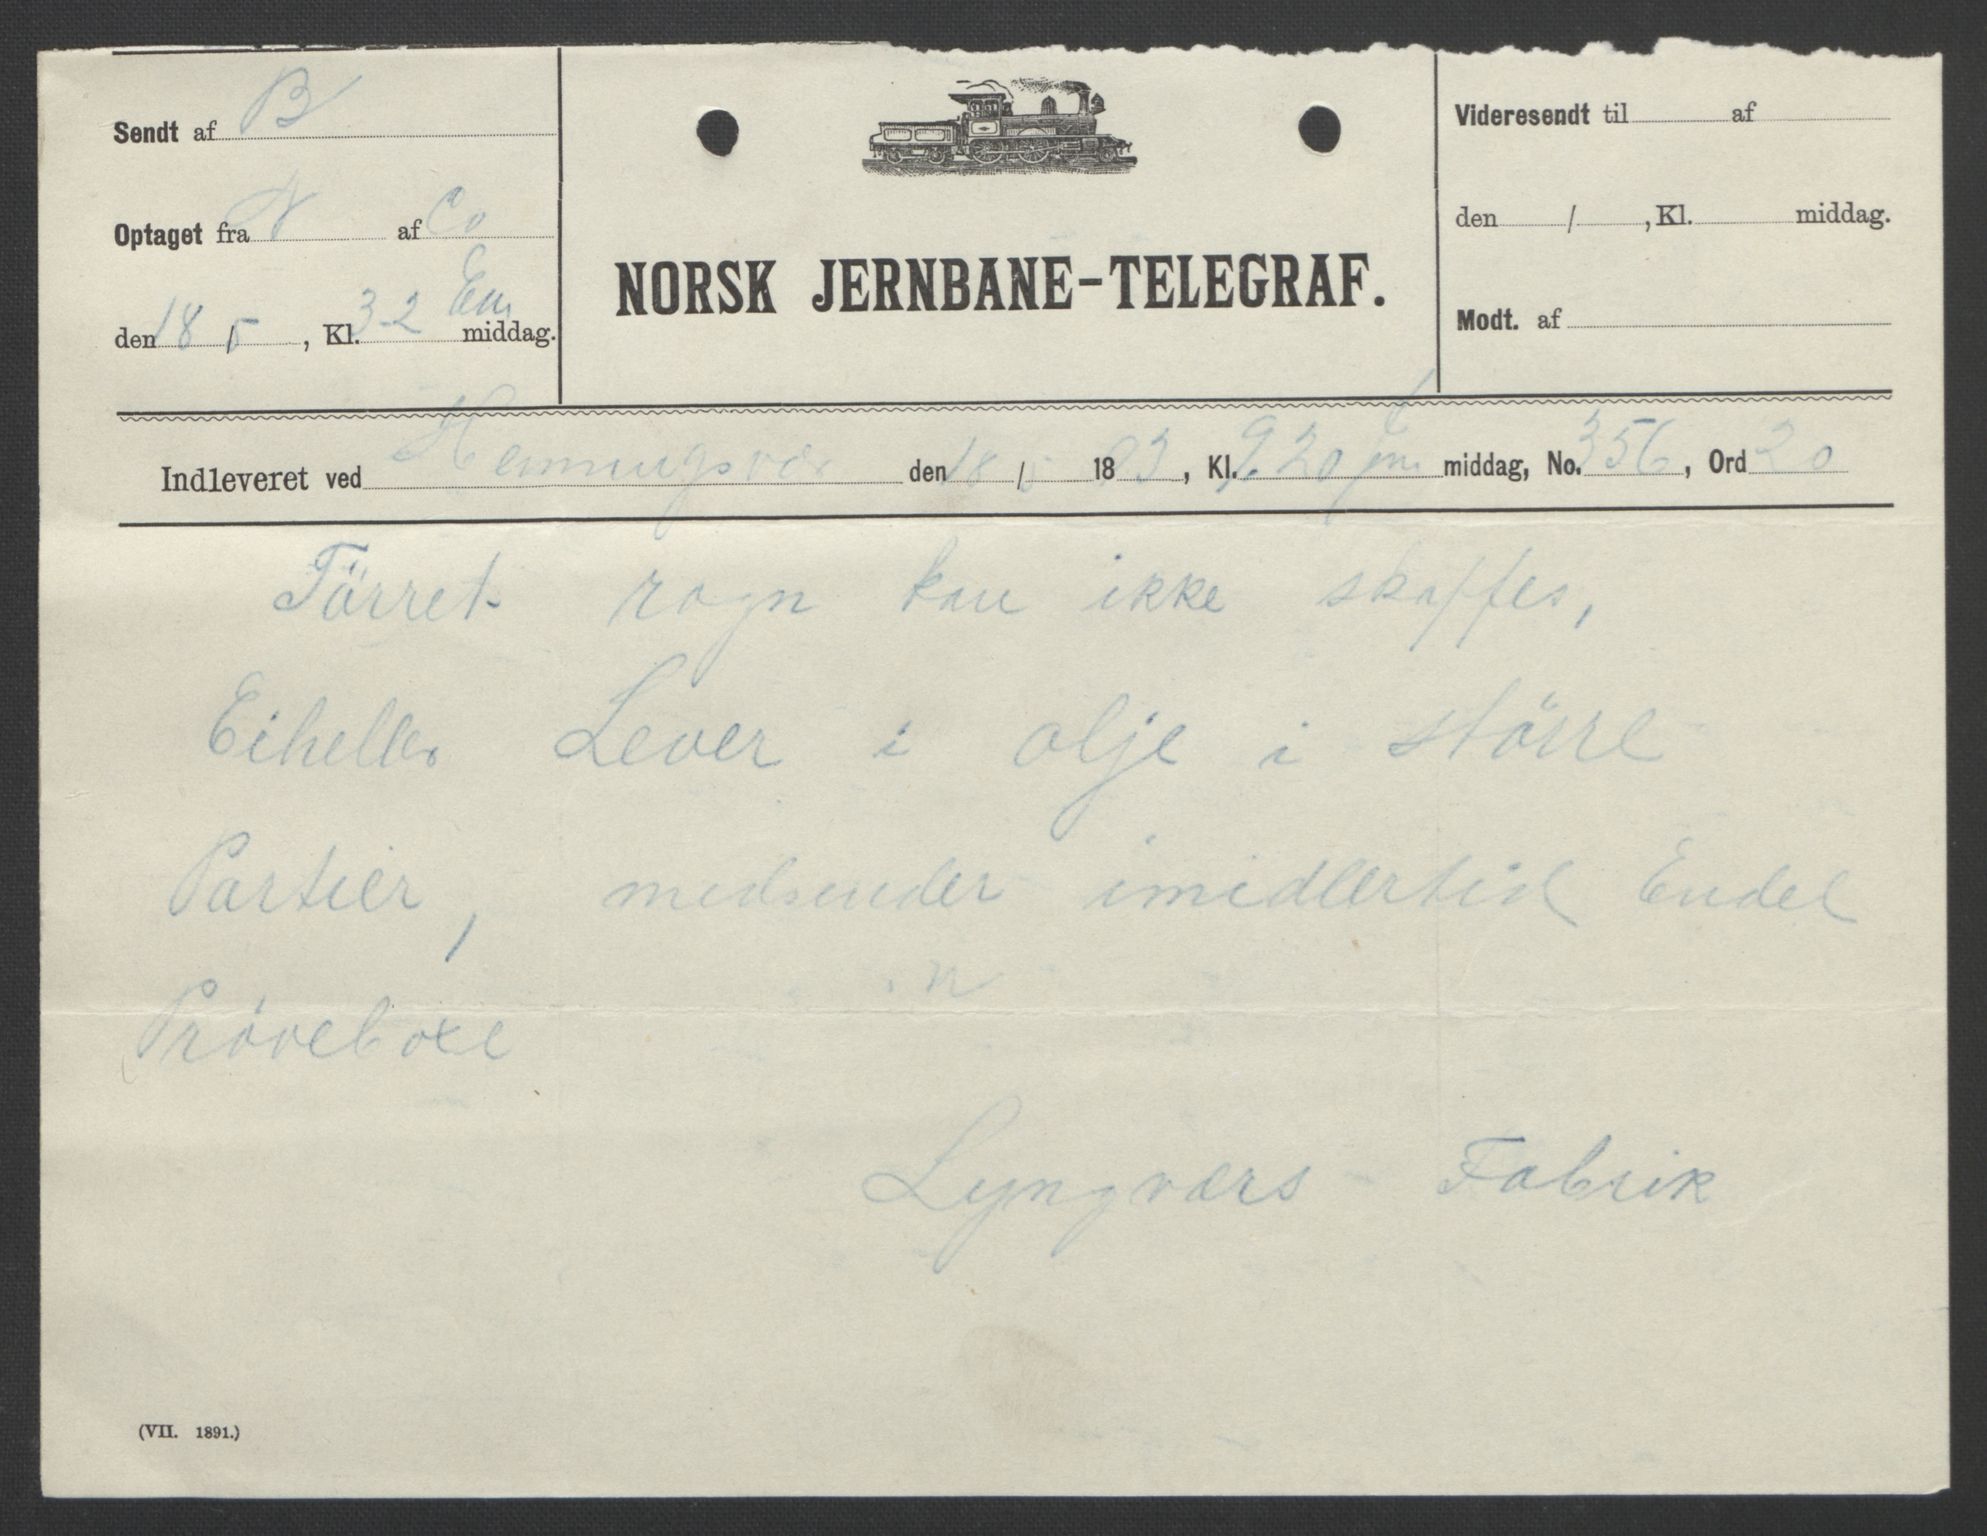 Sendt af B
Optaget fra N af Co
den 18/5, Kl. 3-2 Em middag.
NORSK JERNBANE-TELEGRAF.
Videresendt til af
den / , Kl. middag.
Modt. af
Indleveret ved Henningsvær den 18/5 18 93, Kl. 9,20 fm middag, No. 356, Ord 20
Törret rogn kan ikke skaffes,
Eiheller Lever i olje i större
Partier, medsender imidlertid Endel
Pröveboxe
Lyngværs Fabrik
(VII. 1891.)